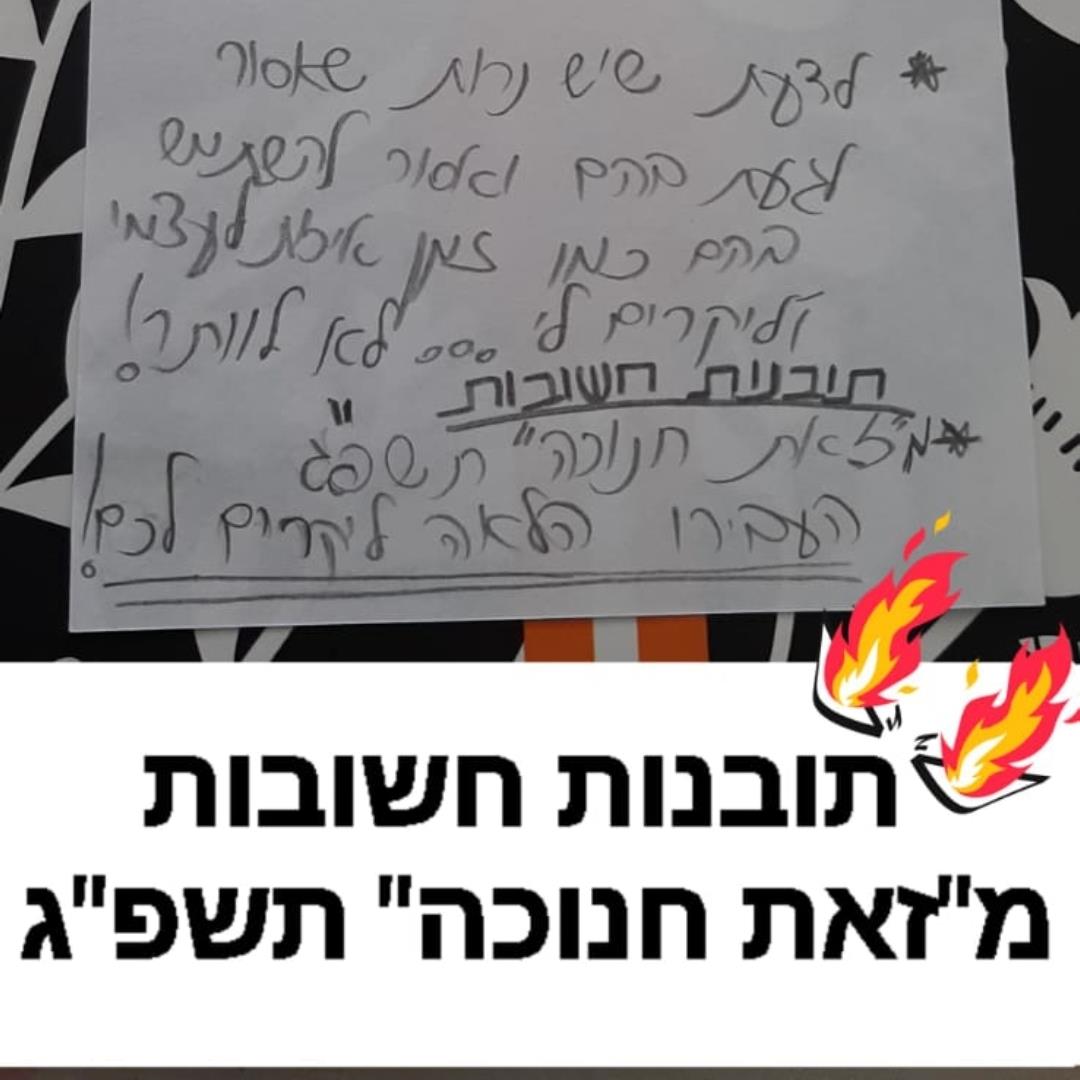 * לדעת שיש נרות שאסור
לגעת בהם ואסור להשתמש
בהם כמו זמן איכות לעצמי
וליקרים לי ... לא לוותר!
תובנות חשובות
* מ"זאת חנוכה" תשפ"ג
העבירו הלאה ליקרים לכם!
תובנות חשובות
מ"זאת חנוכה" תשפ"ג